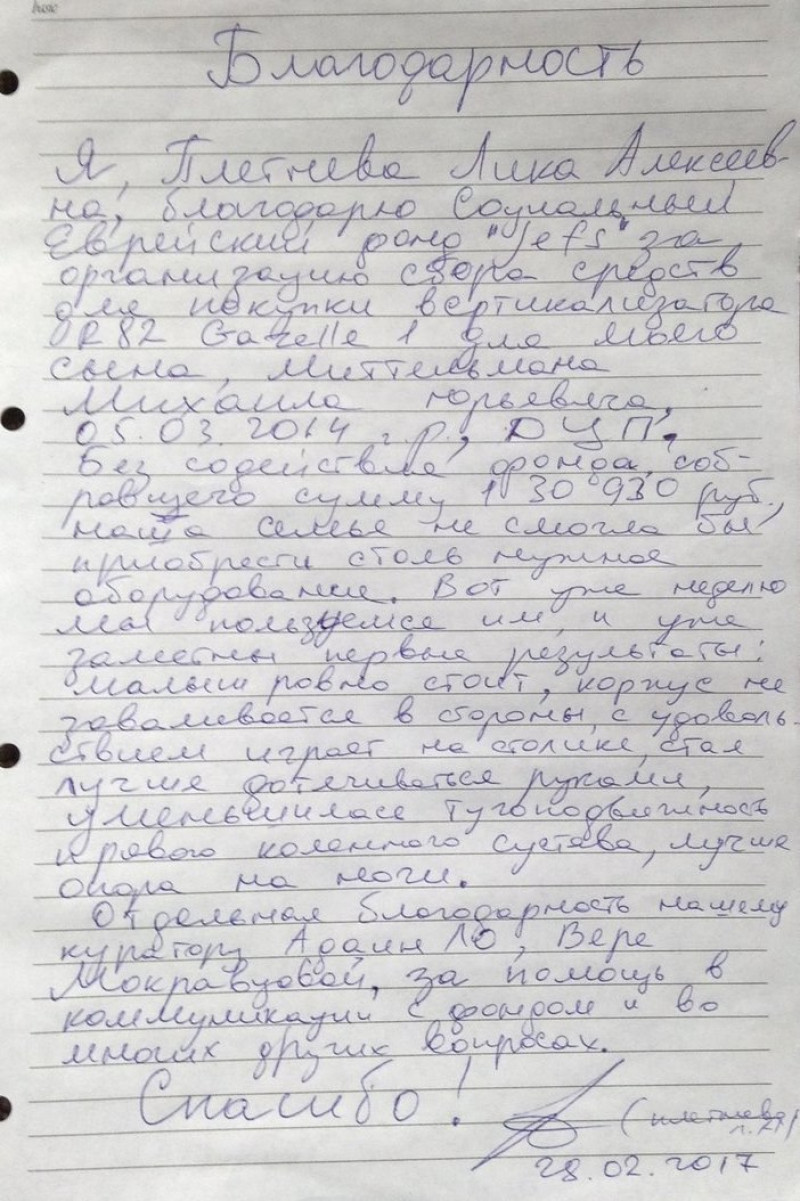 Благодарность
Я, Плетнева Лика Алексеев-
на, благодарю Социальный
Еврейский фонд "Jefs" за
организацию сбора средств
для покупки вертикализатора
R82 Gazelle 1 для моего
сына, Миттельмана
Михаила Юрьевича,
05.03.2014 г.р., ДЦП.
Без содействия фонда, соб-
равшего сумму 130 930 руб.,
наша семья не смогла бы
приобрести столь нужное
оборудование. Вот уже неделю
мы пользуемся им, и уже
заметны первые результаты:
малыш ровно стоит, корпус не
заваливается в стороны, с удоволь-
ствием играет на столике, стал
лучше дотягиваться руками,
уменьшилась тугоподвижность
правого коленного сустава, лучше
опора на ноги.
Отдельная благодарность нашему
куратору Адаин Ло, Вере
Мокравцовой, за помощь в
коммуникации с фондом и во
многих других вопросах.
Спасибо!
(Плетнева
28.02.2017